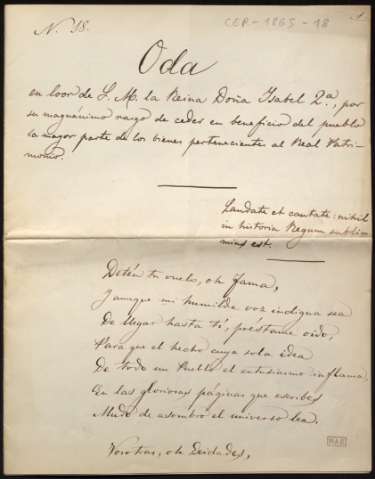 N. 18.
CER-1865-18
1
Oda
en loor de S. M. la Reina Doña Isabel 2ª, por
su magnánimo rasgo de ceder en beneficio del pueblo
la mayor parte de los bienes perteneciente al Real Patri-
monio.
Laudate et cantate: nihil
in historia Regum sublim
mius est.
Detén tu vuelo, oh fama,
Y aunque mi humilde voz indigna sea
De llegar hasta ti, préstame oido,
Para que el hecho cuya sola idea
De todo un Pueblo el entusiasmo inflama,
En las gloriosas páginas que escribes
Mudo de asombro el universo lea.
Vosotras, oh Deidades,
RAE